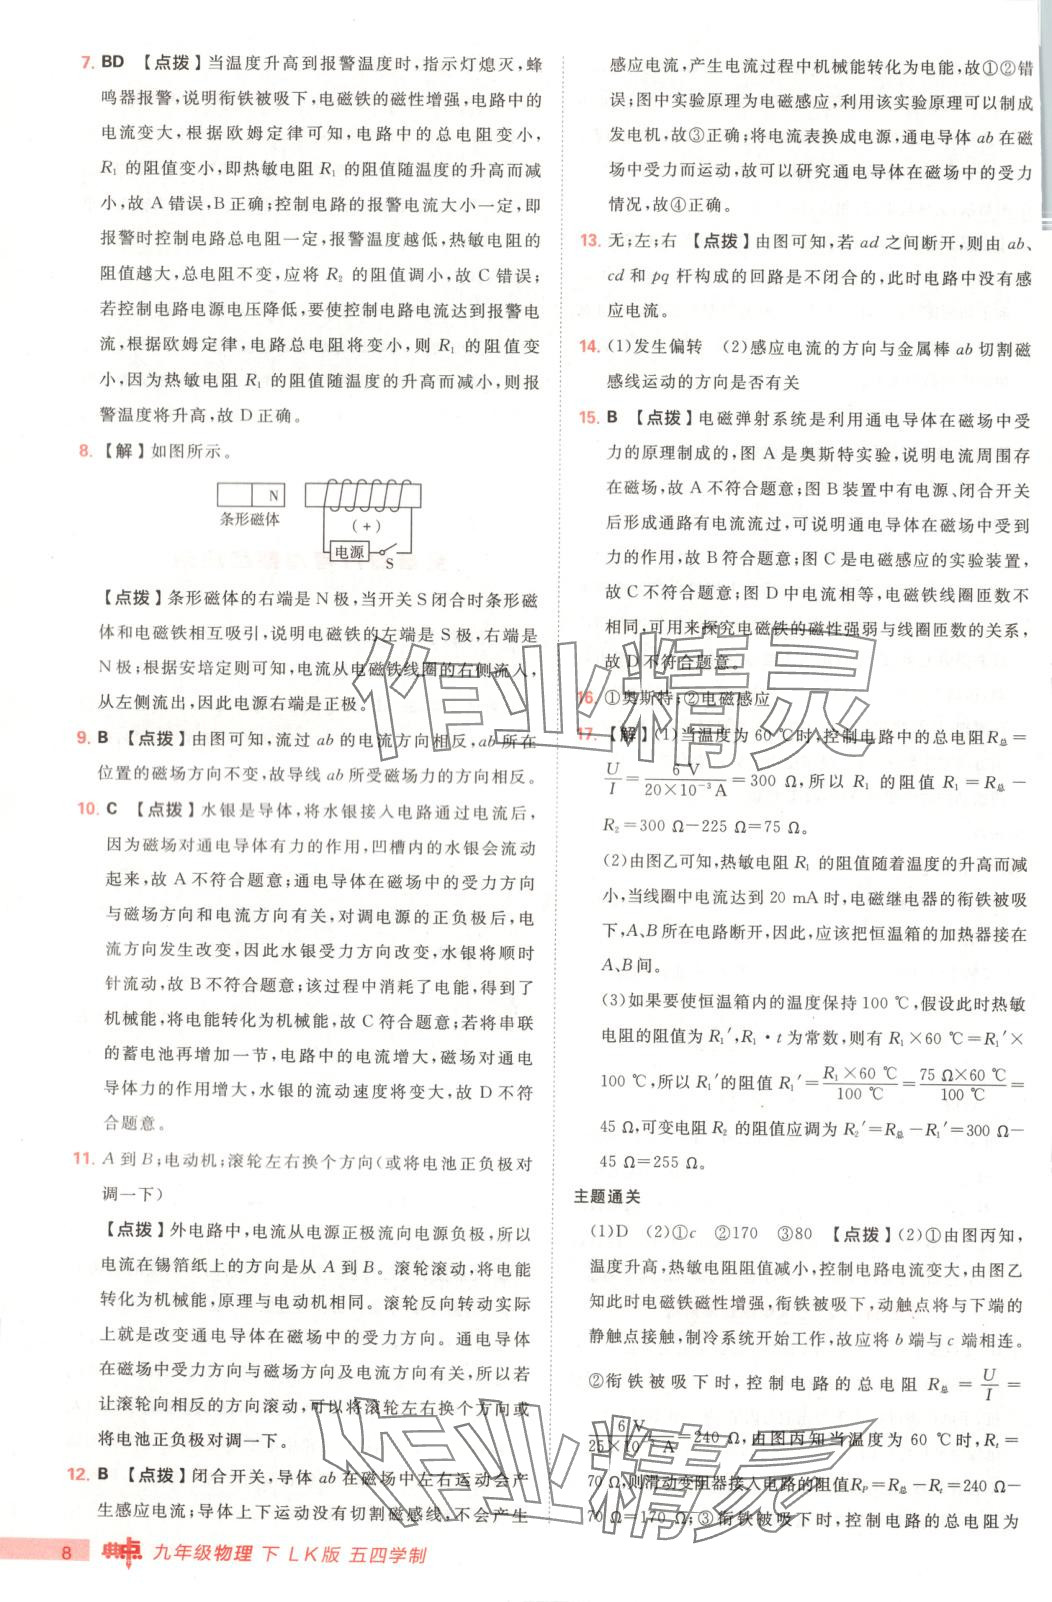 7. BD 【点拨】当温度升高到报警温度时,指示灯熄灭,蜂
鸣器报警,说明衔铁被吸下,电磁铁的磁性增强,电路中的
电流变大,根据欧姆定律可知,电路中的总电阻变小,
R₁ 的阻值变小,即热敏电阻 R₁ 的阻值随温度的升高而减
小,故 A 错误,B 正确;控制电路的报警电流大小一定,即
报警时控制电路总电阻一定,报警温度越低,热敏电阻的
阻值越大,总电阻不变,应将 R₂ 的阻值调小,故 C 错误;
若控制电路电源电压降低,要使控制电路电流达到报警电
流,根据欧姆定律,电路总电阻将变小,则 R₁ 的阻值变
小,因为热敏电阻 R₁ 的阻值随温度的升高而减小,则报
警温度将升高,故 D 正确。
8. 【解】如图所示。
N
条形磁体
(+)
电源
S
【点拨】条形磁体的右端是 N 极,当开关 S 闭合时条形磁
体和电磁铁相互吸引,说明电磁铁的左端是 S 极,右端是
N 极;根据安培定则可知,电流从电磁铁线圈的右侧流入,
从左侧流出,因此电源右端是正极。
9. B 【点拨】由图可知,流过 ab 的电流方向相反,ab 所在
位置的磁场方向不变,故导线 ab 所受磁场力的方向相反。
10. C 【点拨】水银是导体,将水银接入电路通过电流后,
因为磁场对通电导体有力的作用,凹槽内的水银会流动
起来,故 A 不符合题意;通电导体在磁场中的受力方向
与磁场方向和电流方向有关,对调电源的正负极后,电
流方向发生改变,因此水银受力方向改变,水银将顺时
针流动,故 B 不符合题意;该过程中消耗了电能,得到了
机械能,将电能转化为机械能,故 C 符合题意;若将串联
的蓄电池再增加一节,电路中的电流增大,磁场对通电
导体力的作用增大,水银的流动速度将变大,故 D 不符
合题意。
11. A 到 B;电动机;滚轮左右换个方向(或将电池正负极对
调一下)
【点拨】外电路中,电流从电源正极流向电源负极,所以
电流在锡箔纸上的方向是从 A 到 B。滚轮滚动,将电能
转化为机械能,原理与电动机相同。滚轮反向转动实际
上就是改变通电导体在磁场中的受力方向。通电导体
在磁场中受力方向与磁场方向及电流方向有关,所以若
让滚轮向相反的方向滚动,可以将滚轮左右换个方向或
将电池正负极对调一下。
12. B 【点拨】闭合开关,导体 ab 在磁场中左右运动会产
生感应电流;导体上下运动没有切割磁感线,不会产生
感应电流,产生电流过程中机械能转化为电能,故①②错
误;图中实验原理为电磁感应,利用该实验原理可以制成
发电机,故③正确;将电流表换成电源,通电导体 ab 在磁
场中受力而运动,故可以研究通电导体在磁场中的受力
情况,故④正确。
13. 无;左;右 【点拨】由图可知,若 ad 之间断开,则由 ab、
cd 和 pq 杆构成的回路是不闭合的,此时电路中没有感
应电流。
14. (1)发生偏转 (2)感应电流的方向与金属棒 ab 切割磁
感线运动的方向是否有关
15. B 【点拨】电磁弹射系统是利用通电导体在磁场中受
力的原理制成的,图 A 是奥斯特实验,说明电流周围存
在磁场,故 A 不符合题意;图 B 装置中有电源、闭合开关
后形成通路有电流流过,可说明通电导体在磁场中受到
力的作用,故 B 符合题意;图 C 是电磁感应的实验装置,
故 C 不符合题意;图 D 中电流相等,电磁铁线圈匝数不
相同,可用来探究电磁铁的磁性强弱与线圈匝数的关系,
故 D 不符合题意。
16. ①奥斯特;②电磁感应
17. 【解】(1)当温度为 60 ℃时,控制电路中的总电阻R总=
U/I=6 V/20×10⁻³ A=300 Ω,所以 R₁ 的阻值 R₁=R总-
R₂=300 Ω-225 Ω=75 Ω。
(2)由图乙可知,热敏电阻 R₁ 的阻值随着温度的升高而减
小,当线圈中电流达到 20 mA 时,电磁继电器的衔铁被吸
下,A、B 所在电路断开,因此,应该把恒温箱的加热器接在
A、B 间。
(3)如果要使恒温箱内的温度保持 100 ℃,假设此时热敏
电阻的阻值为 R₁′,R₁·t 为常数,则有 R₁×60 ℃=R₁′×
100 ℃,所以 R₁′的阻值 R₁′=R₁×60 ℃/100 ℃=75 Ω×60 ℃/100 ℃=
45 Ω,可变电阻 R₂ 的阻值应调为 R₂′=R总-R₁′=300 Ω-
45 Ω=255 Ω。
主题通关
(1)D (2)①c ②170 ③80 【点拨】(2)①由图丙知,
温度升高,热敏电阻阻值减小,控制电路电流变大,由图乙
知此时电磁铁磁性增强,衔铁被吸下,动触点将与下端的
静触点接触,制冷系统开始工作,故应将 b 端与 c 端相连。
②衔铁被吸下时,控制电路的总电阻 R总=U/I=
6 V/25×10⁻³ A=240 Ω,由图丙知当温度为 60 ℃时,Rt=
70 Ω,则滑动变阻器接入电路的阻值RP=R总-Rt=240 Ω-
70 Ω=170 Ω;③衔铁被吸下时,控制电路的总电阻为
作业精灵
作业精灵
8 典点 九年级物理 下 LK版 五四学制